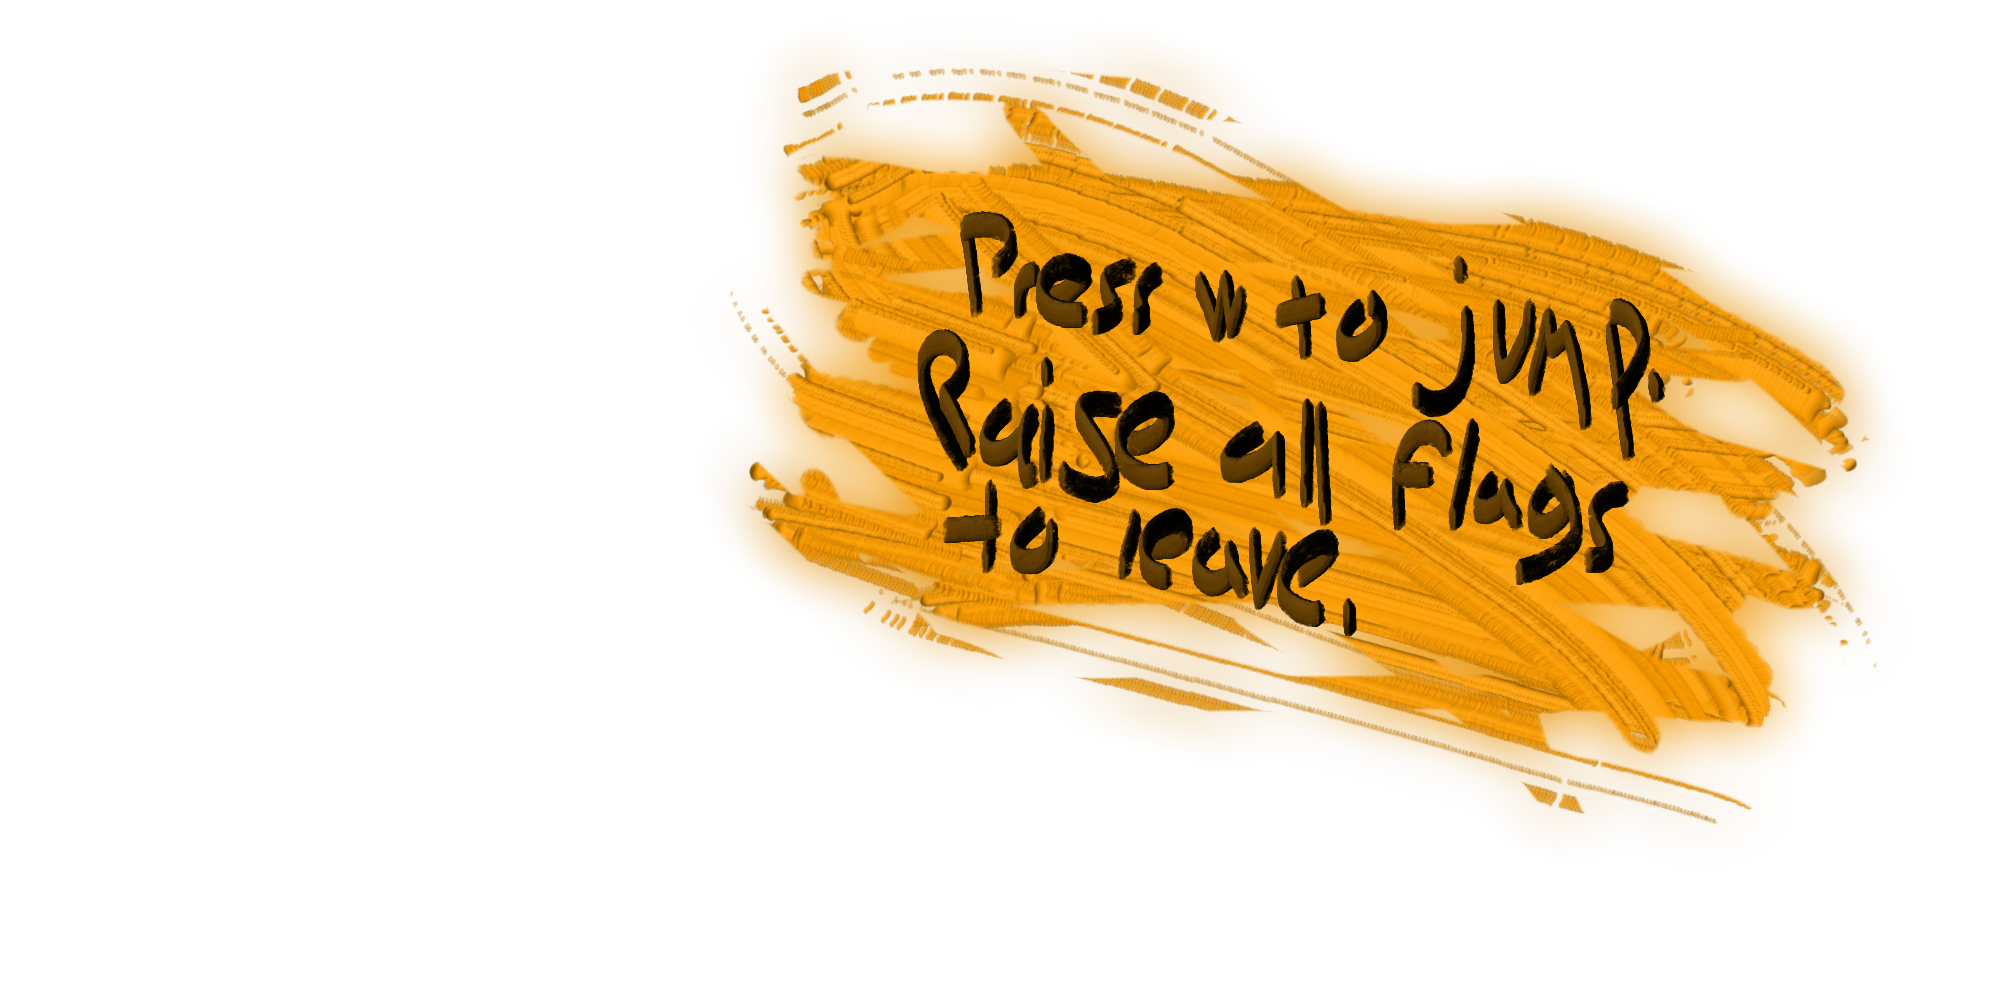 Press w to jump.
Raise all flags
to leave.